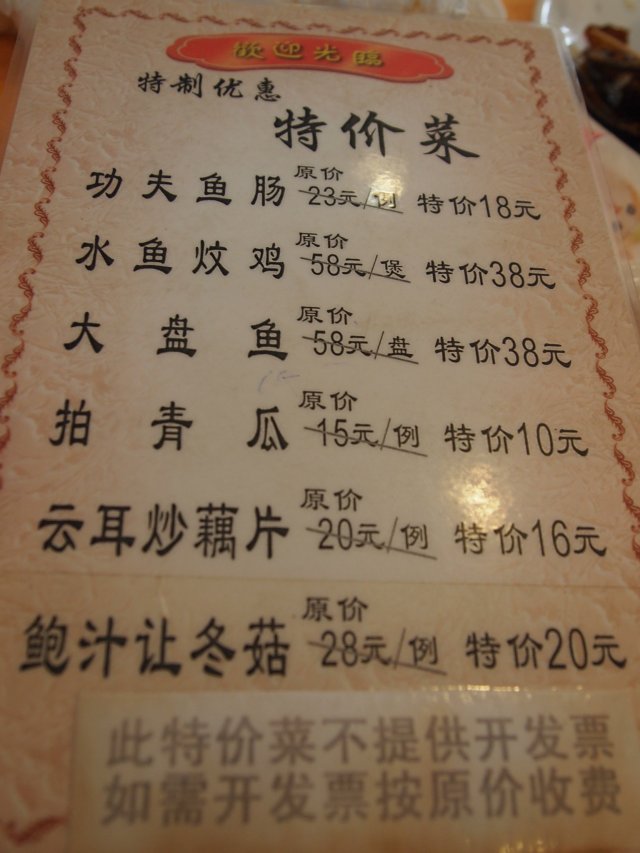 歡迎光臨
特制优惠
特价菜
功夫鱼肠 原价23元/例 特价18元
水鱼炆鸡 原价58元/煲 特价38元
大盘鱼 原价58元/盘 特价38元
拍青瓜 原价15元/例 特价10元
云耳炒藕片 原价20元/例 特价16元
鲍汁让冬菇 原价28元/例 特价20元
此特价菜不提供开发票
如需开发票按原价收费